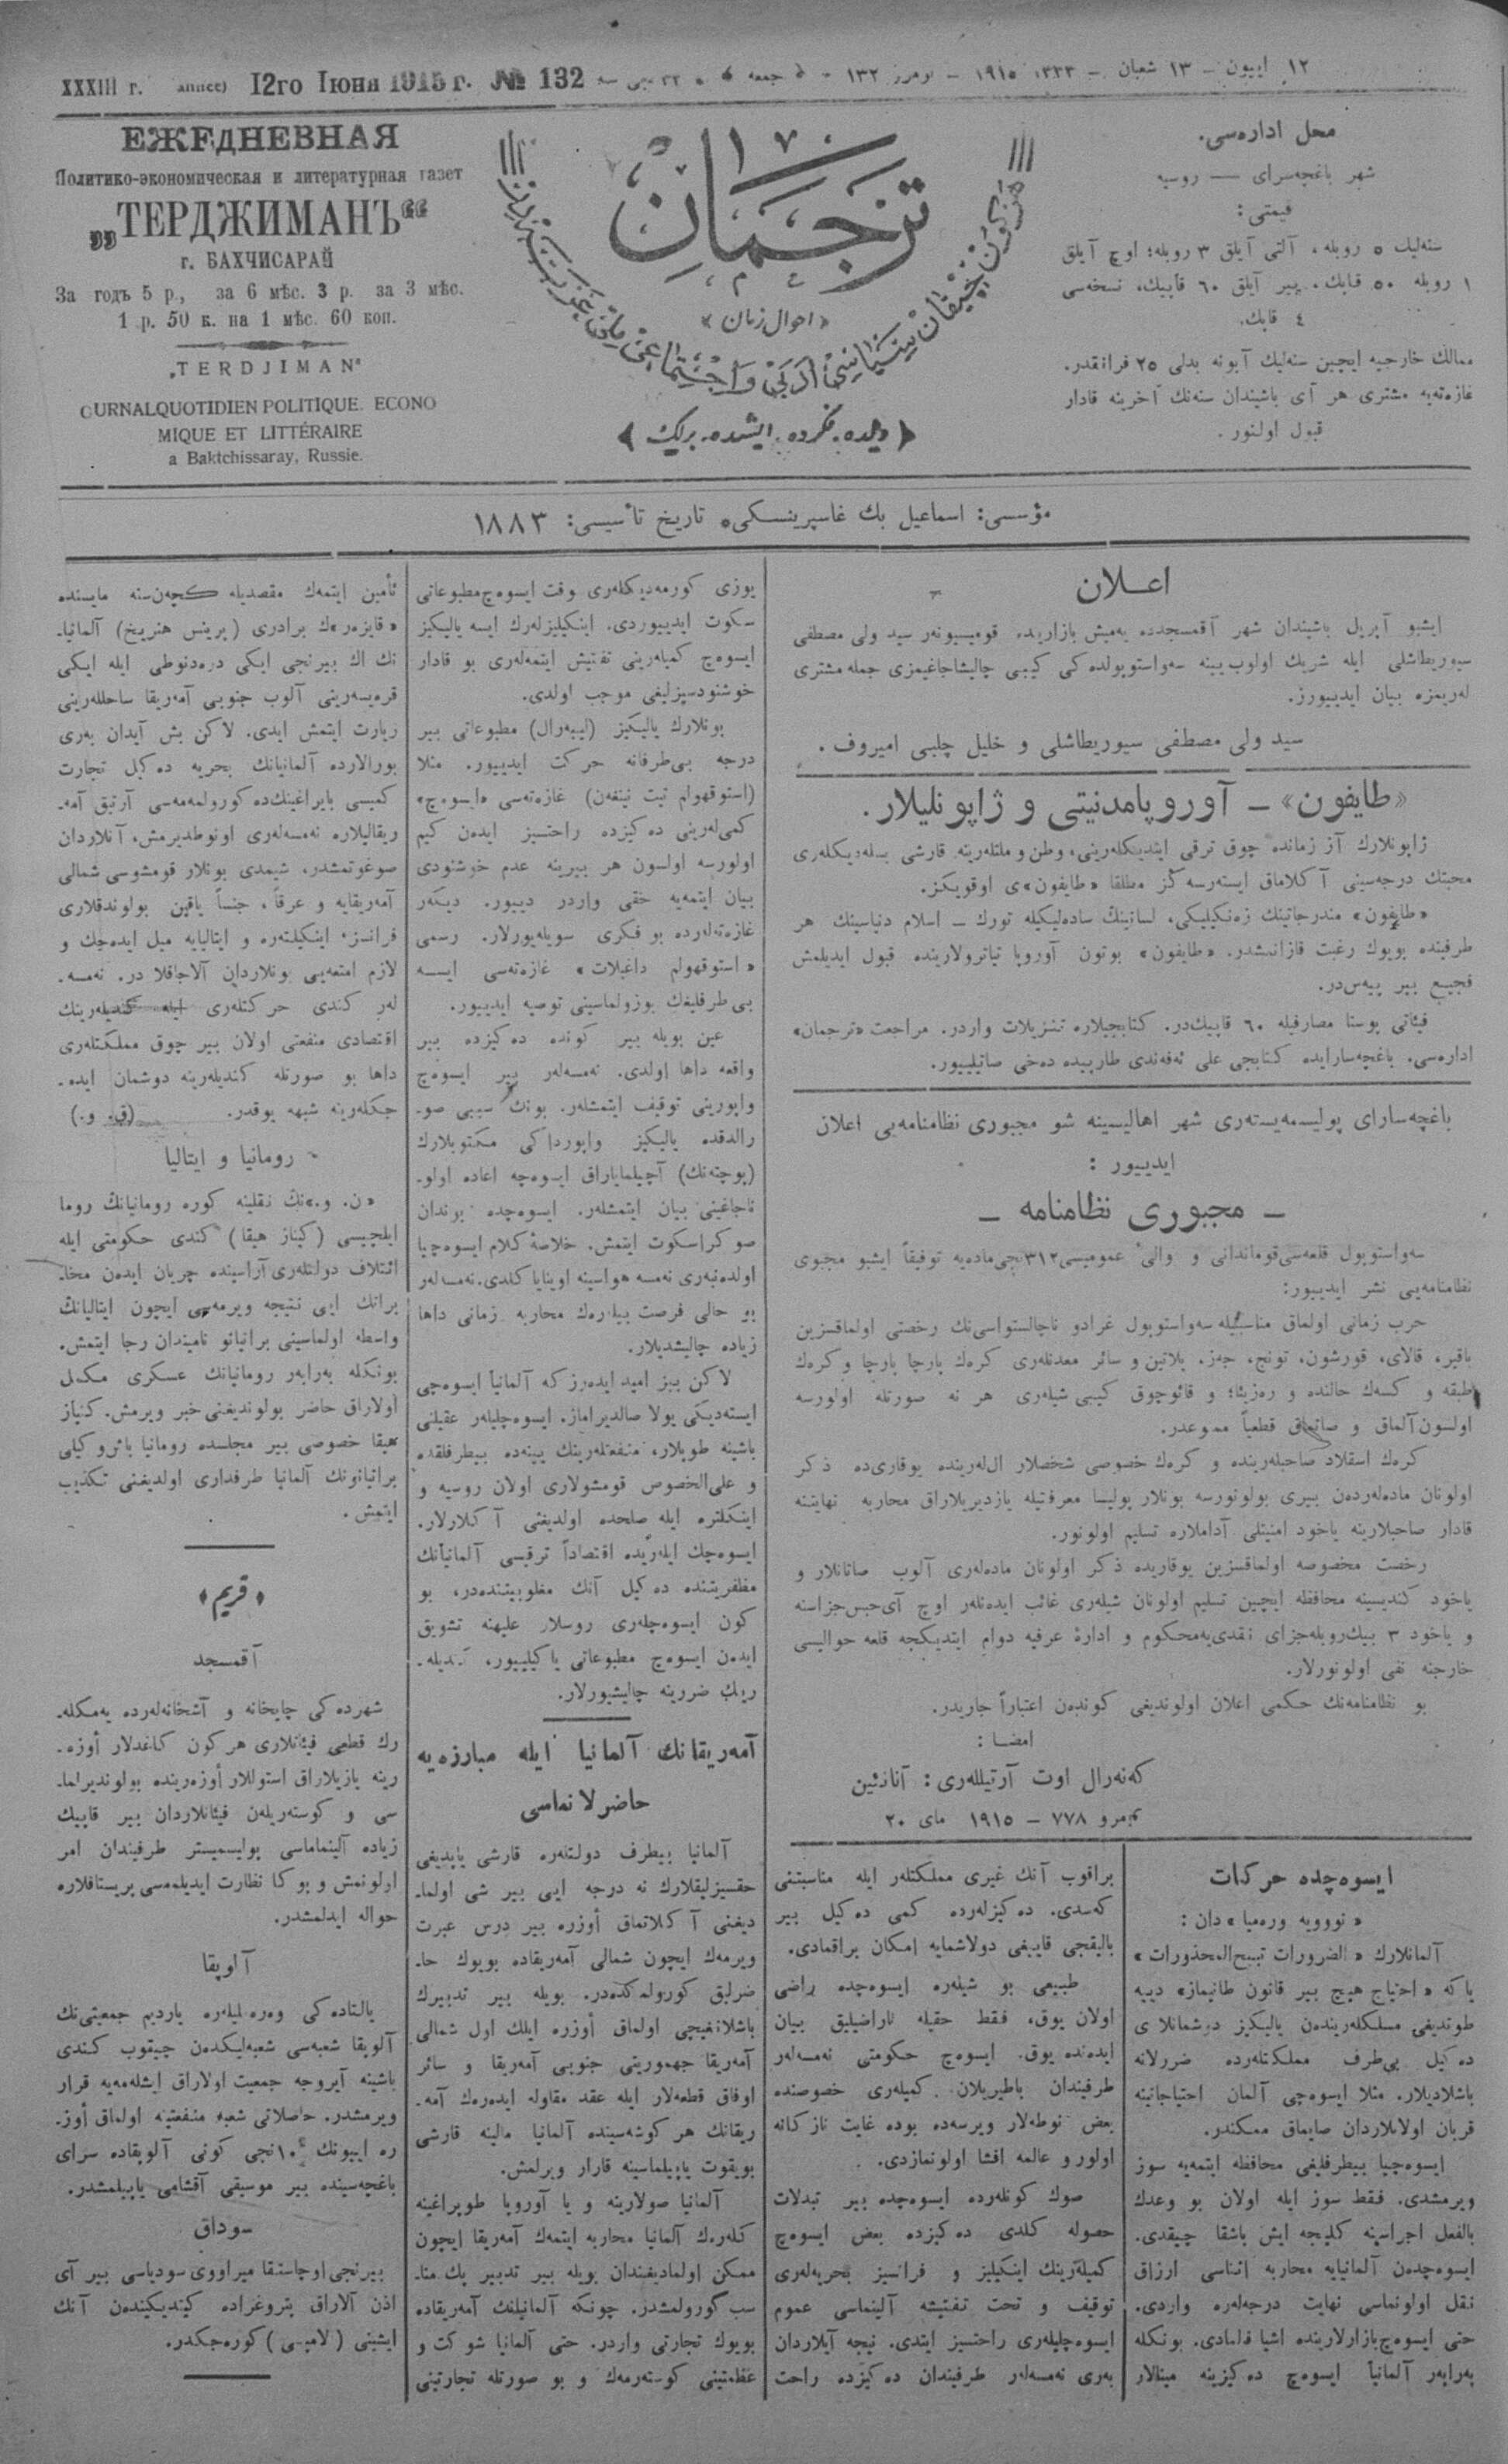 XXXIII г. 12го Іюня 1915 г. № 132
١٢ اییون – ١٣ شعبان – ١٣٣٣، ١٩١٥ – نومرو ١٣٢ – جمعه
ЕЖЕДНЕВНАЯ
Политико-экономическая и литературная газет
„ТЕРДЖИМАНЪ“
г. БАХЧИСАРАЙ
За годъ 5 р., за 6 мѣс. 3 р. за 3 мѣс.
1 р. 50 к. на 1 мѣс. 60 коп.
„TERDJIMAN“
OURNALQUOTIDIEN POLITIQUE. ECONO
MIQUE ET LITTÉRAIRE
a Baktchissaray, Russie.
ترجمان
«احوال زمان»
دیلده، فكرده، ایشده، برلك
محل اداره‌سی.
شهر باغچه‌سرای — روسیه
قیمتی:
سنه‌لیك ٥ روبله، آلتی آیلق ٣ روبله؛ اوچ آیلق
١ روبله ٥٠ قابك، بیر آیلق ٦٠ قاپیك، نسخه‌سی
٤ قابك.
ممالك خارجیه ایچین سنه‌لیك آبونه بدلی ٢٥ فرانقدر.
غازه‌ته‌یه مشتری هر آی باشیندان سنه‌نك آخرینه قادار
قبول اولنور.
مؤسسی: اسماعیل بك غاسپرینسكی، تاریخ تأسیسی: ١٨٨٣
اعـلان
ایشبو آپریل باشیندان شهر آقمسجدده یه‌میش بازارینده قومیسیونه‌ر سید ولی مصطفی
سیوریطاشلی ایله شریك اولوب یینه سه‌واستوپولده‌كی كیبی چالیشاجاغیمزی جمله مشتری
له‌ریمزه بیان ایدییورز.
سید ولی مصطفی سیوریطاشلی و خلیل چلبی امیروف.
«طایفون» – آوروپامدنیتی و ژاپونلیلار.
ژاپونلارك آز زمانده چوق ترقی ایتدیكله‌رینی، وطن و ملتله‌رینه قارشی بسله‌دیكله‌ری
محبتك درجه‌سینی آكلاماق ایسته‌رسه‌كز مطلقا «طایفون»ی اوقویكز.
«طایفون» مندرجاتینك زه‌نكیلیكی، لسانینك ساده‌لیكیله تورك – اسلام دنیاسینك هر
طرفینده بویوك رغبت قازانمشدر. «طایفون» بوتون آوروپا تیاترولارینده قبول ایدیلمش
فجیع بیر پیه‌س‌در.
فیئاتی پوستا مصارفیله ٦٠ قاپیك‌در. كتابجیلاره تنزیلات واردر. مراجعت «ترجمان»
اداره‌سی. باغچه‌سارایده كتابجی علی ئه‌فه‌ندی طارپیده ده‌خی صاتیلییور.
باغچه‌سارای پولیسمه‌یسته‌ری شهر اهالیسینه شو مجبوری نظامنامه‌یی اعلان
ایدییور:
– مجبوری نظامنامه –
سه‌واستوپول قلعه‌سی‌قوماندانی و والیٔ عمومیسی٣١٢نجی‌ماده‌یه توفیقاً ایشبو مجبوی
نظامنامه‌یی نشر ایدییور:
حرب زمانی اولماق مناسبتیله سه‌واستوپول غرادو ناچالستواسی‌نك رخصتی اولماقسزین
باقیر، قالای، قورشون، تونج، جه‌ز، پلاتین و سائر معدنله‌ری كره‌ك پارچا پارچا و كره‌ك
طبقه و كسه‌ك حالنده و ره‌زینا؛ و قائوچوق كیبی شیله‌ری هر نه صورتله اولورسه
اولسون آلماق و صاتماق قطعیاً ممنوعدر.
كره‌ك اسقلاد صاحبله‌رینده و كره‌ك خصوصی شخصلار ال‌له‌رینده یوقاری‌ده ذكر
اولونان ماده‌له‌ردن بیری بولونورسه بونلار پولیسا معرفتیله یازدیریلاراق محاربه نهایتینه
قادار صاحبلارینه یاخود امنیتلی آداملاره تسلیم اولونور.
رخصت مخصوصه اولماقسزین یوقاریده ذكر اولونان ماده‌له‌ری آلوب صاتانلار و
یاخود كندیسینه محافظه ایچین تسلیم اولونان شیله‌ری غائب ایده‌نله‌ر اوچ آی‌حبس‌جزاسنه
و یاخود ٣ بیك‌روبله‌جزای نقدی‌یه‌محكوم و ادارۀ عرفیه دوام ایتدیكجه قلعه حوالیسی
خارجنه نفی اولونورلار.
بو نظامنامه‌نك حكمی اعلان اولوندیغی كوندن اعتباراً جاریدر.
امضـا:
كه‌نه‌رال اوت آرتیلله‌ری: آنانئین
نومرو ٧٧٨ – ١٩١٥ مای ٢٠
ایسوه‌چده حركات
«نوویه وره‌میا»دان:
آلمانلارك «الضرورات تبیح‌المحذورات»
یا كه «احتیاج هیچ بیر قانون طانیماز» دییه
طوتدیغی مسلكله‌ریندن یالیكز دوشمانلا ی
ده‌كیل بی‌طرف مملكتله‌رده ضررلانه
باشلادیلار. مثلا ایسوه‌چی آلمان احتیاجاتینه
قربان اولانلاردان صایماق ممكندر.
ایسوه‌چیا بیطرفلیغی محافظه ایتمه‌یه سوز
ویرمشدی. فقط سوز ایله اولان بو وعدك
بالفعل اجراسینه كلیجه ایش باشقا چیقدی.
ایسوه‌چدن آلمانیایه محاربه اثناسی ارزاق
نقل اولونماسی نهایت درجه‌له‌ره واردی.
حتی ایسوه‌چ‌بازارلارینده اشیا قالمادی. بونكله
به‌رابه‌ر آلمانیا ایسوه‌چ ده‌كیزینه مینالار
براقوب آنك غیری مملكتله‌ر ایله مناسبتنی
كه‌سدی. ده‌كیزله‌رده كمی ده‌كیل بیر
بالیقجی قاییغی دولاشمایه امكان براقمادی.
طبیعی بو شیله‌ره ایسوه‌چده راضی
اولان یوق، فقط حقیله ناراضیلیق بیان
ایده‌نده یوق. ایسوه‌چ حكومتی نه‌مسه‌له‌ر
طرفیندان باطیریلان كمیله‌ری خصوصنده
بعض نوطه‌لار ویرسه‌ده بوده غایت نازكانه
اولور و عالمه افشا اولونمازدی.
صوك كونله‌رده ایسوه‌چده بیر تبدلات
حصوله كلدی ده‌كیزده بعض ایسوه‌چ
كمیله‌رینك اینكیلیز و فرانسیز بحریه‌له‌ری
توقیف و تحت تفتیشه آلینماسی عموم
ایسوه‌چلیله‌ری راحتسیز ایتدی. نیجه آیلاردان
به‌ری نه‌مسه‌له‌ر طرفیندان ده‌كیزده راحت
یوزی كورمه‌دیكله‌ری وقت ایسوه‌چ‌مطبوعاتی
سكوت ایدییوردی. اینكیلیزله‌رك ایسه یالیكیز
ایسوه‌چ كمیله‌رینی تفتیش ایتمه‌له‌ری بو قادار
خوشنودسیزلیغی موجب اولدی.
بونلارك یالیكیز (لیبه‌رال) مطبوعاتی بیر
درجه بی‌طرفانه حركت ایدییور. مثلا
(استوقهولم تیت نینغه‌ن) غازه‌ته‌سی «ایسوه‌چ»
كمی‌له‌رینی ده‌كیزده راحتسیز ایدن كیم
اولورسه اولسون هر بیرینه عدم خوشنودی
بیان ایتمه‌یه حقی واردر دییور. دیكه‌ر
غازه‌ته‌له‌رده بو فكری سویله‌یورلار. رسمی
«استوقهولم داغبلات» غازه‌ته‌سی ایسه
بی‌طرفلیغك بوزولماسینی توصیه ایدییور.
عین بویله بیر كونده ده‌كیزده بیر
واقعه داها اولدی. نه‌مسه‌له‌ر بیر ایسوه‌چ
واپورینی توقیف ایتمشله‌ر. بونك سببی صو-
رالدقده یالیكیز واپورداكی مكتوبلارك
(پوچته‌نك) آچیلمایاراق ایسوه‌چه اعاده اولو-
ناجاغینی بیان ایتمشله‌ر. ایسوه‌چده بوندان
صوكراسكوت ایتمش. خلاصۀ كلام ایسوه‌چیا
اولده‌نبه‌ری نه‌مسه هواسینه اوینایا كلدی. نه‌مسه‌له‌ر
بو حالی فرصت بیله‌رك محاربه زمانی داها
زیاده چالیشدیلار.
لاكن بیز امید ایده‌رز كه آلمانیا ایسوه‌چی
ایسته‌دیكی یولا صالدیراماز. ایسوه‌چلیله‌ر عقیلنی
باشینه طوپلار، منفعتله‌رینك یینه‌ده بیطرفلقده
و علی‌الخصوص قومشولاری اولان روسیه و
اینكلتره ایله صلحده اولدیغنی آكلارلار.
ایسوه‌چك ایله‌ریده اقتصاداً ترقیسی آلمانیانك
مظفریتنده ده‌كیل آنك مغلوبیتنده‌در، بو
كون ایسوه‌چله‌ری روسلار علیهنه تشویق
ایدن ایسوه‌چ مطبوعاتی یاكیلییور، كندیله-
رینك ضررینه چالیشیورلار.
آمه‌ریقانك آلمانیا ایله مبارزه‌یه
حاضرلانماسی
آلمانیا بیطرف دولتله‌ره قارشی یاپدیغی
حقسیزلیقلارك نه درجه ایی بیر شی اولما-
دیغنی آكلاتماق أوزره بیر درس عبرت
ویرمه‌ك ایچون شمالی آمه‌ریقاده بویوك حا-
ضرلیق كورولمكده‌در. بویله بیر تدبیرك
باشلانغیچی اولماق أوزره ایلك اول شمالی
آمه‌ریقا جمهوریتی جنوبی آمه‌ریقا و سائر
اوفاق قطعه‌لار ایله عقد مقاوله ایده‌رك آمه-
ریقانك هر كوشه‌سینده آلمانیا مالینه قارشی
بویقوت یاپیلماسینه قارار ویرلمش.
آلمانیا صولارینه و یا آوروپا طوپراغینه
كله‌رك آلمانیا محاربه ایتمه‌ك آمه‌ریقا ایچون
ممكن اولمادیغیندان بویله بیر تدبیر پك منا-
سب كورولمشدر. چونكه آلمانیانك آمه‌ریقاده
بویوك تجارتی واردر. حتی آلمانیا شوكت و
عظمتینی كوسته‌رمه‌ك و بو صورتله تجارتینی
تأمین ایتمه‌ك مقصدیله كچن‌سنه مایسنده
«قایزه‌ر»ك برادری (پرینس هنریخ) آلمانیا-
نك اك بیرنجی ایكی دره‌دنوطی ایله ایكی
قره‌یسه‌رینی آلوب جنوبی آمه‌ریقا ساحلله‌رینی
زیارت ایتمش ایدی. لاكن بش آیدان به‌ری
بورالارده آلمانیانك بحریه ده‌كیل تجارت
كمیسی بایراغینك‌ده كورولمه‌مه‌سی آرتیق آمه-
ریقالیلاره نه‌مسه‌له‌ری اونوطدیرمش، آنلاردان
صوغوتمشدر، شیمدی بونلار قومشوسی شمالی
آمه‌ریقایه و عرقاً، جنساً یاقین بولوندقلاری
فرانسز، اینكیلتره‌ و ایتالیایه میل ایده‌جك و
لازم امتعه‌یی بونلاردان آلاجاقلادر. نه‌مسه-
له‌ر كندی حركتله‌ری ایله كندیله‌رینك
اقتصادی منفعتی اولان بیر چوق مملكتله‌ری
داها بو صورتله كندیله‌رینه دوشمان ایده-
جكله‌رینه شبهه یوقدر. (ق. و.)
رومانیا و ایتالیا
«ن. و.»نك نقلینه كوره رومانیانك روما
ایلچیسی (كیناز هیقا) كندی حكومتی ایله
ائتلاف دولتله‌ری آراسینده جریان ایدن مخا-
برانك ایی نتیجه ویرمه‌سی ایچون ایتالیانك
واسطه اولماسینی براتیانو نامیندان رجا ایتمش.
بونكله به‌رابه‌ر رومانیانك عسكری مكمل
أولاراق حاضر بولوندیغنی خبر ویرمش. كنیاز
هیقا خصوصی بیر مجلسده رومانیا باش‌وكیلی
براتیانونك آلمانیا طرفداری اولدیغنی تكذیب
ایتمش.
«قریم»
آقمسجد
شهرده‌كی چایخانه و آشخانه‌له‌رده یه‌مكله-
رك قطعی فیئاتلاری هر كون كاغدلار أوزه-
رینه یازیلاراق استوللار أوزه‌رینده بولوندیرلما-
سی و كوسته‌ریله‌ن فیئاتلاردان بیر قاپیك
زیاده آلینماماسی پولیسمیستر طرفیندان امر
اولونمش و بوكا نظارت ایدیلمه‌سی پریستافلاره
حواله ایدلمشدر.
آلوپقا
یالتاده‌كی وه‌ره‌ملیله‌ره یاردیم جمعیتی‌نك
آلوپقا شعبه‌سی شعبه‌لیكدن چیقوب كندی
باشینه آیروجه جمعیت اولاراق ایشله‌مه‌یه قرار
ویرمشدر. حاصلاتی شعبه منفعتینه اولماق أوز-
ره اییونك ١٠نجی كونی آلوپقاده سرای
باغچه‌سینده بیر موسیقی آقشامی یاپیلمشدر.
سوداق
بیرنجی اوچاستقا میراووی سودیاسی بیر آی
اذن آلاراق پتروغراده كیتدیكیندن آنك
ایشینی (لامبی) كوره‌جكدر.